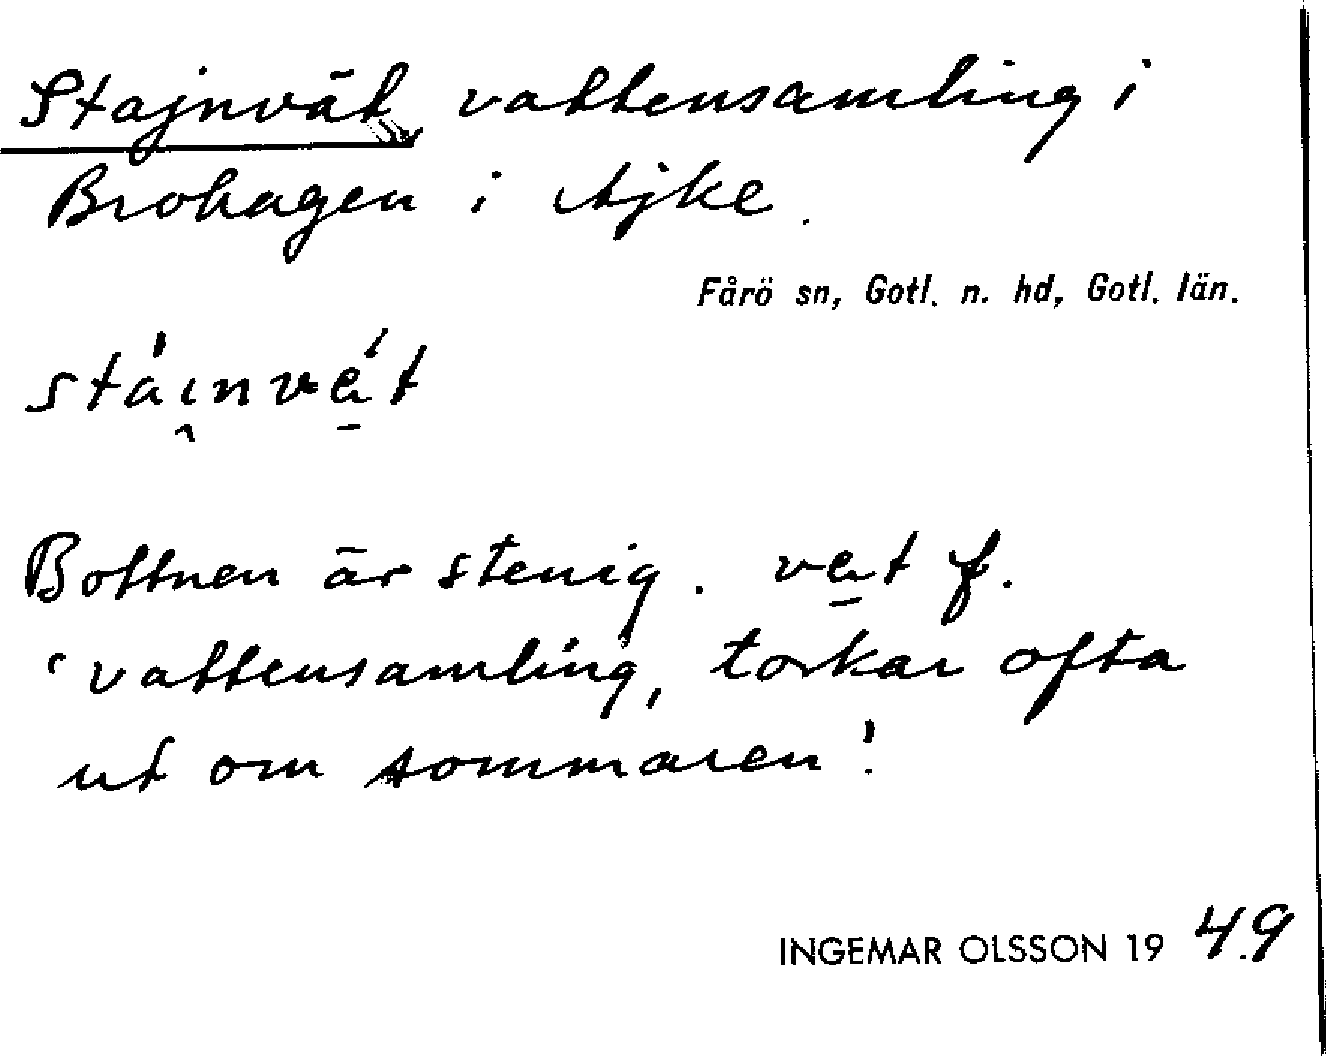 Stajnvät vattensamling i
Brohagen i Ajke.
Fårö sn, Gotl. n. hd, Gotl. län.
Bottnen är stenig. vät f.
'vattensamling, torkar ofta
ut om sommaren'.
INGEMAR OLSSON 19 49